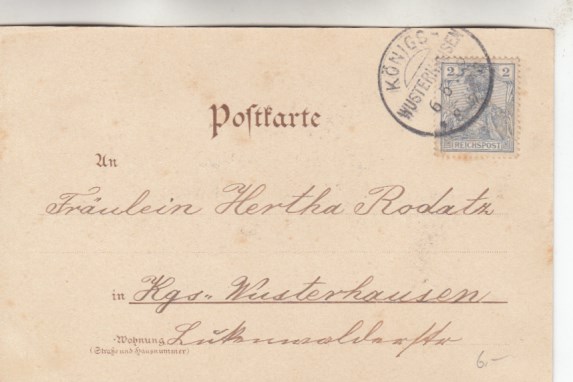 KÖNIGS-
WUSTERHAUSEN
2 2
REICHSPOST
Postkarte
An
Fräulein Hertha Rodatz
in Kgs. Wusterhausen
Wohnung Lukenwalderstr
(Straße und Hausnummer)
6.-